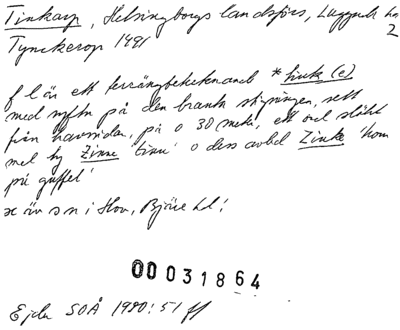 Tinkarp, Helsingborgs landsförs, Luggude hd
2
Tynckerop 1491
f l är ett terrängbetecknande *tink(e)
med syftn på den branta stigningen, sett
från havssidan, på o 30 meter, ett ord släkt
med ty Zinne 'tinne' o dess avled Zinke 'horn
på gaffel'
x är sn i Hov, Bjäre hd!
00031864
Ejder SOÅ 1980:51 ff